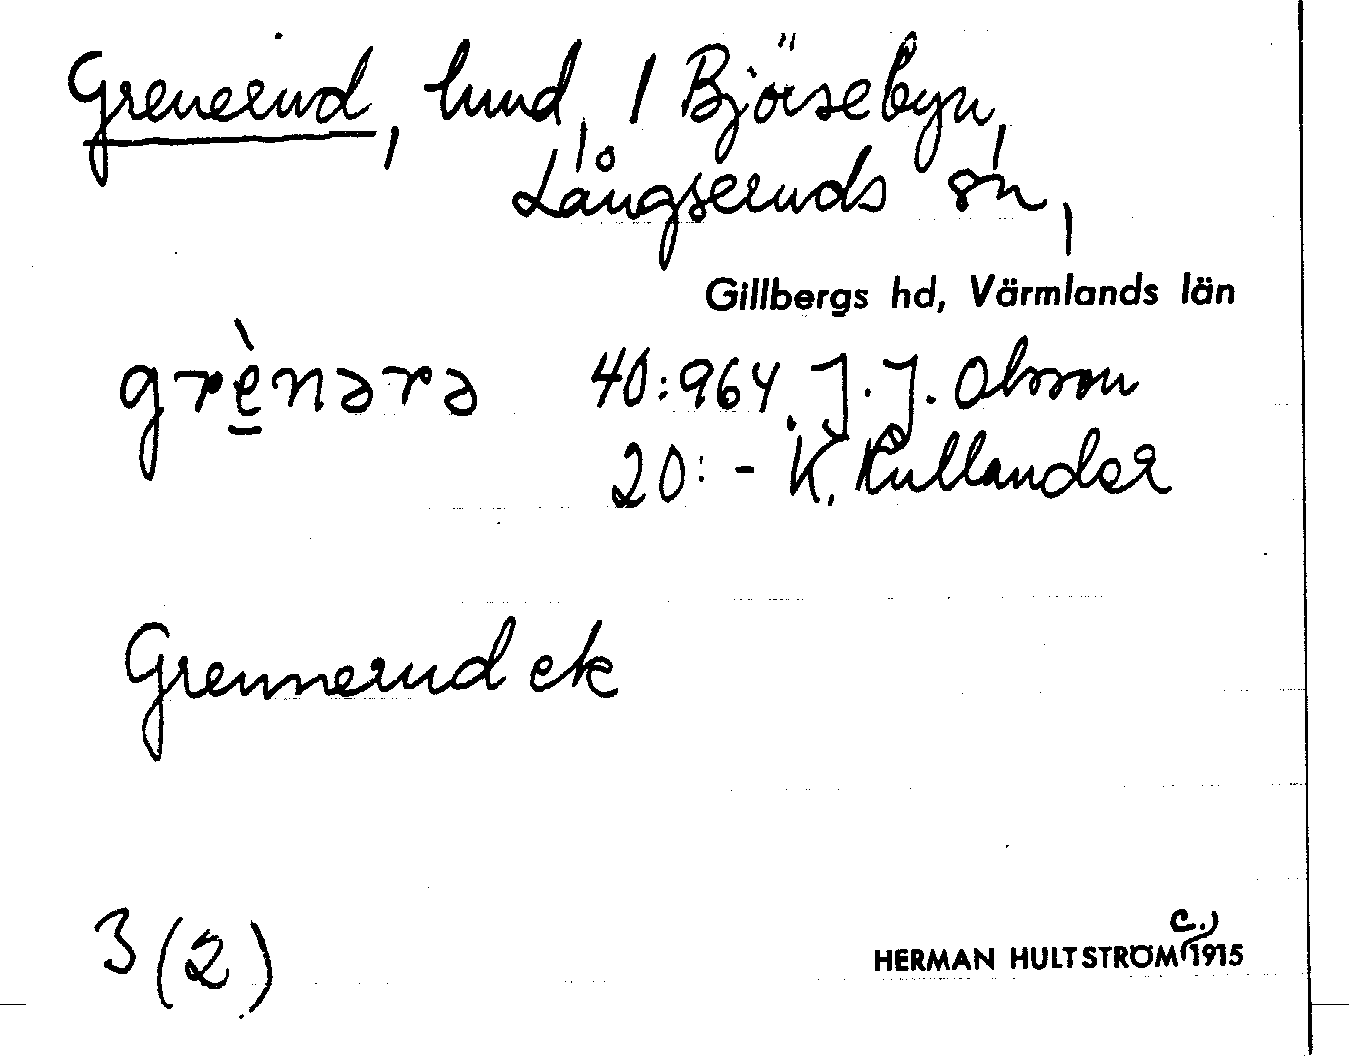 Grenerud, hmd, 1 Björsebyn,
Långseruds sn,
Gillbergs hd, Värmlands län
grènərə 40:964. J. J. Olsson
20: - K. Rullander
Grennerud ek
3 (2) HERMAN HULTSTRÖM (c.) 1915